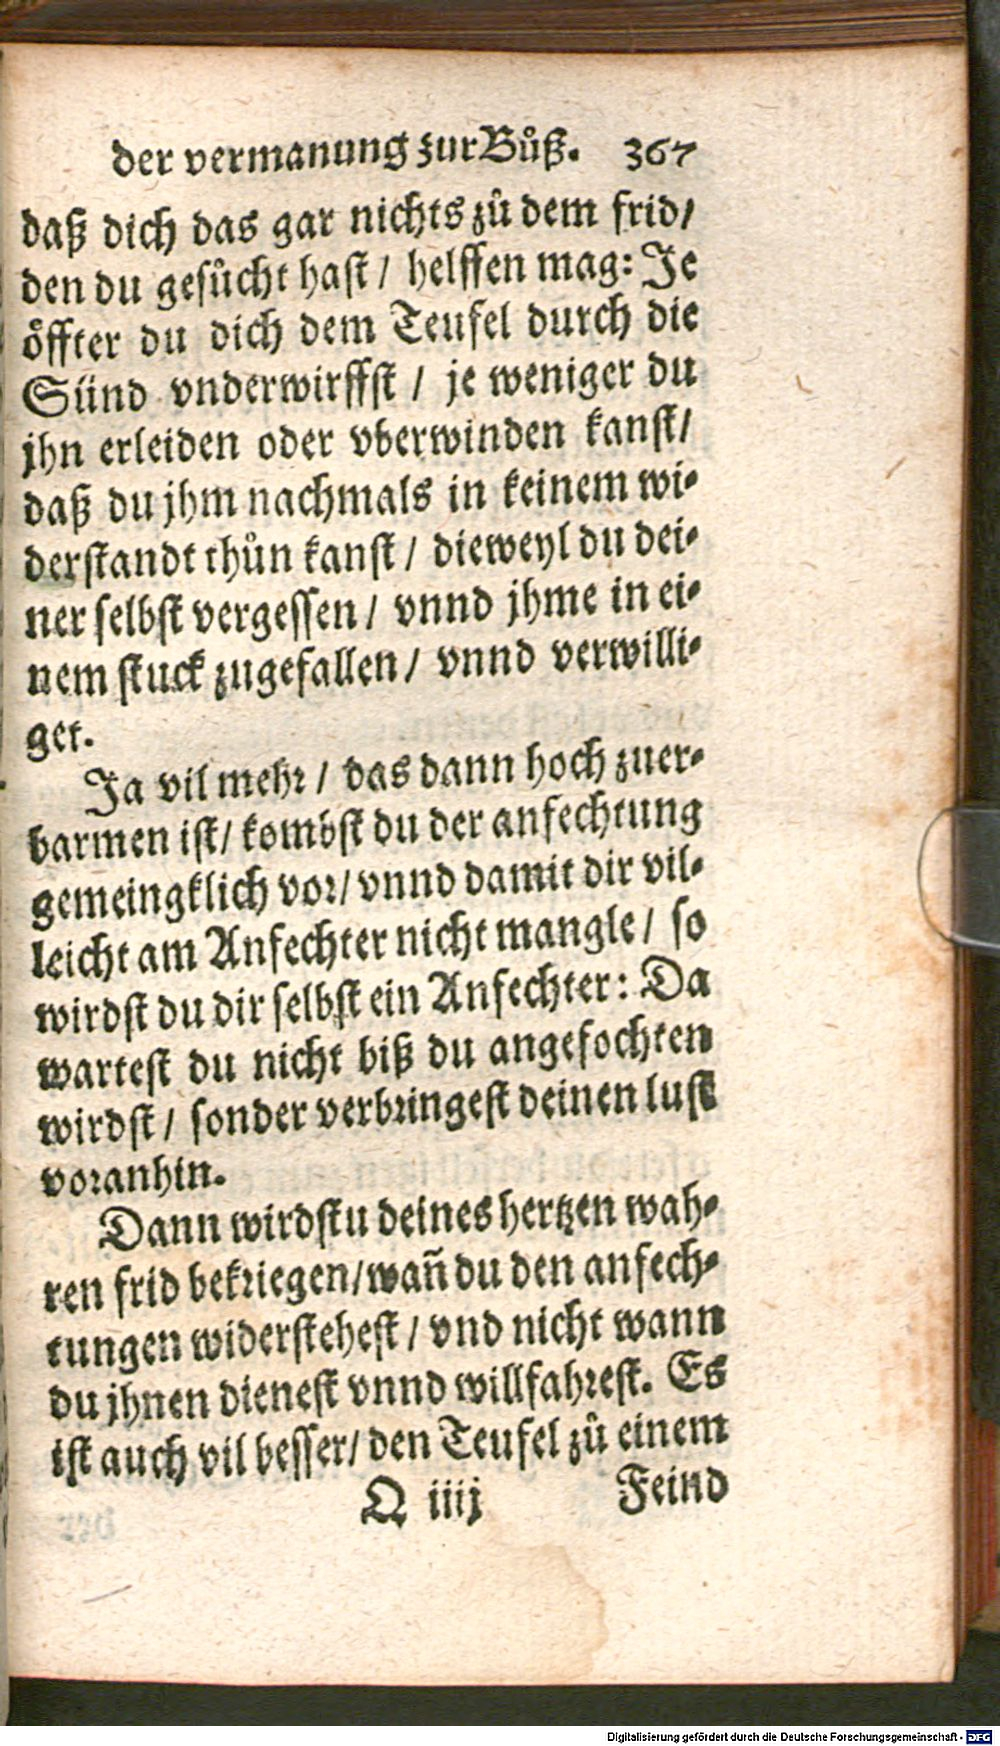 der vermanung zur Bůß. 367
daß dich das gar nichts zů dem frid/
den du gesůcht hast / helffen mag: Je
öffter du dich dem Teufel durch die
Sünd vnderwirffst / je weniger du
jhn erleiden oder vberwinden kanst/
daß du jhm nachmals in keinem wi-
derstandt thůn kanst / dieweyl du dei-
ner selbst vergessen / vnnd jhme in ei-
nem stuck zugefallen / vnnd verwilli-
get.
Ja vil mehr / das dann hoch zuer-
barmen ist / kombst du der anfechtung
gemeingklich vor / vnnd damit dir vil-
leicht am Anfechter nicht mangle / so
wirdst du dir selbst ein Anfechter: Da
wartest du nicht biß du angefochten
wirdst / sonder verbringest deinen lust
voranhin.
Dann wirdstu deines hertzen wah-
ren frid bekriegen/wañ du den anfech-
tungen widerstehest / vnd nicht wann
du jhnen dienest vnnd willfahrest. Es
ist auch vil besser/ den Teufel zů einem
Q iiij Feind
Digitalisierung gefördert durch die Deutsche Forschungsgemeinschaft - DFG